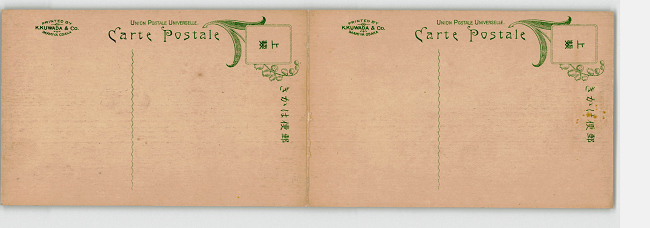 PRINTED BY
K.KUWADA & CO.
UNION POSTALE UNIVERSELLE
Carte Postale
きかは便郵
PRINTED BY
K.KUWADA & CO.
UNION POSTALE UNIVERSELLE
Carte Postale
きかは便郵